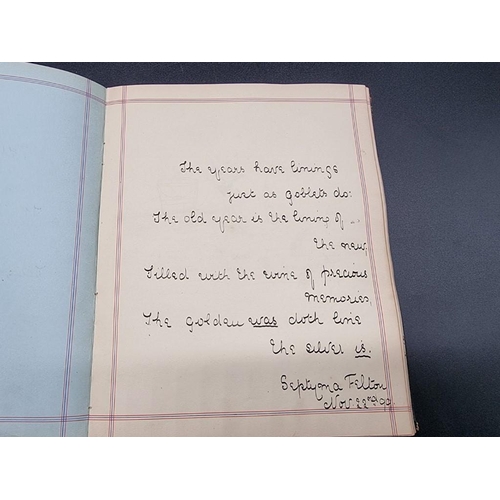 The years have linings
just as goblets do:
The old year is the lining of..
the new,
Filled with the wine of precious
memories,
The golden was doth line
the silver is.
Septyma Felton
Nov. 22nd 99